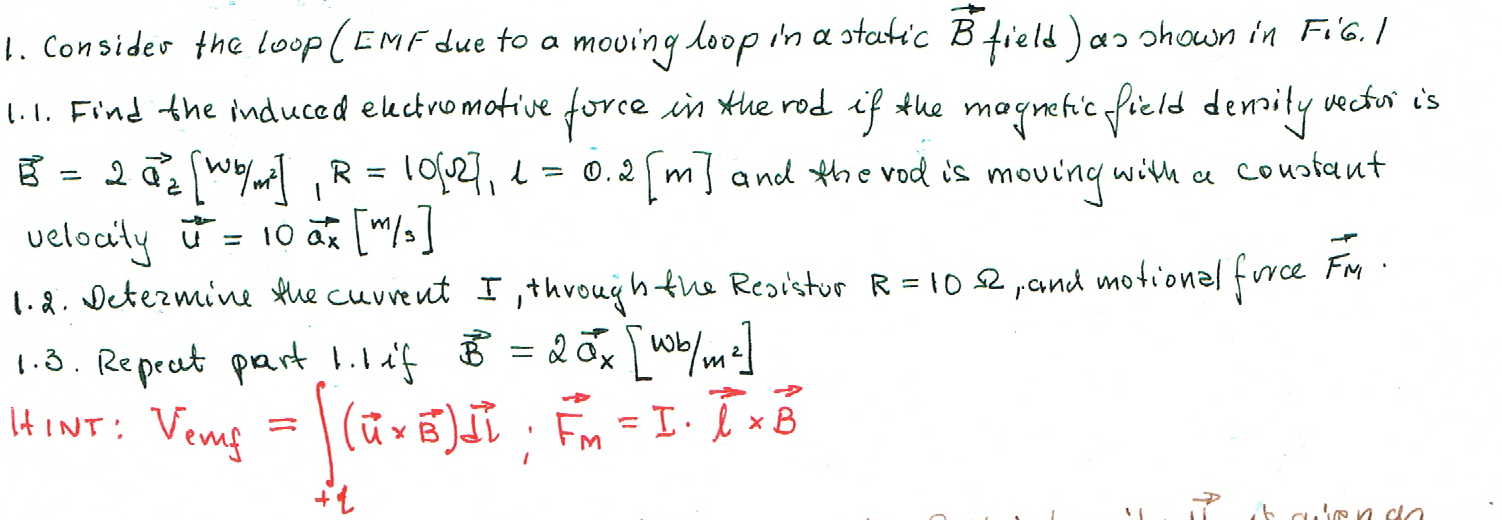 1. Consider the loop (EMF due to a moving loop in a static B⃗ field) as shown in FiG. 1
1.1. Find the induced electromotive force in the rod if the magnetic field density vector is
B⃗ = 2 a⃗z [Wb/m²], R = 10[Ω], l = 0.2 [m] and the rod is moving with a constant
velocity u⃗ = 10 a⃗x [m/s]
1.2. Determine the current I, through the Resistor R = 10 Ω, and motional force F⃗M.
1.3. Repeat part 1.1 if B⃗ = 2 a⃗x [Wb/m²]
HINT: Vemf = ∫+l (u⃗ × B⃗) dl⃗ ; F⃗M = I · l⃗ × B⃗